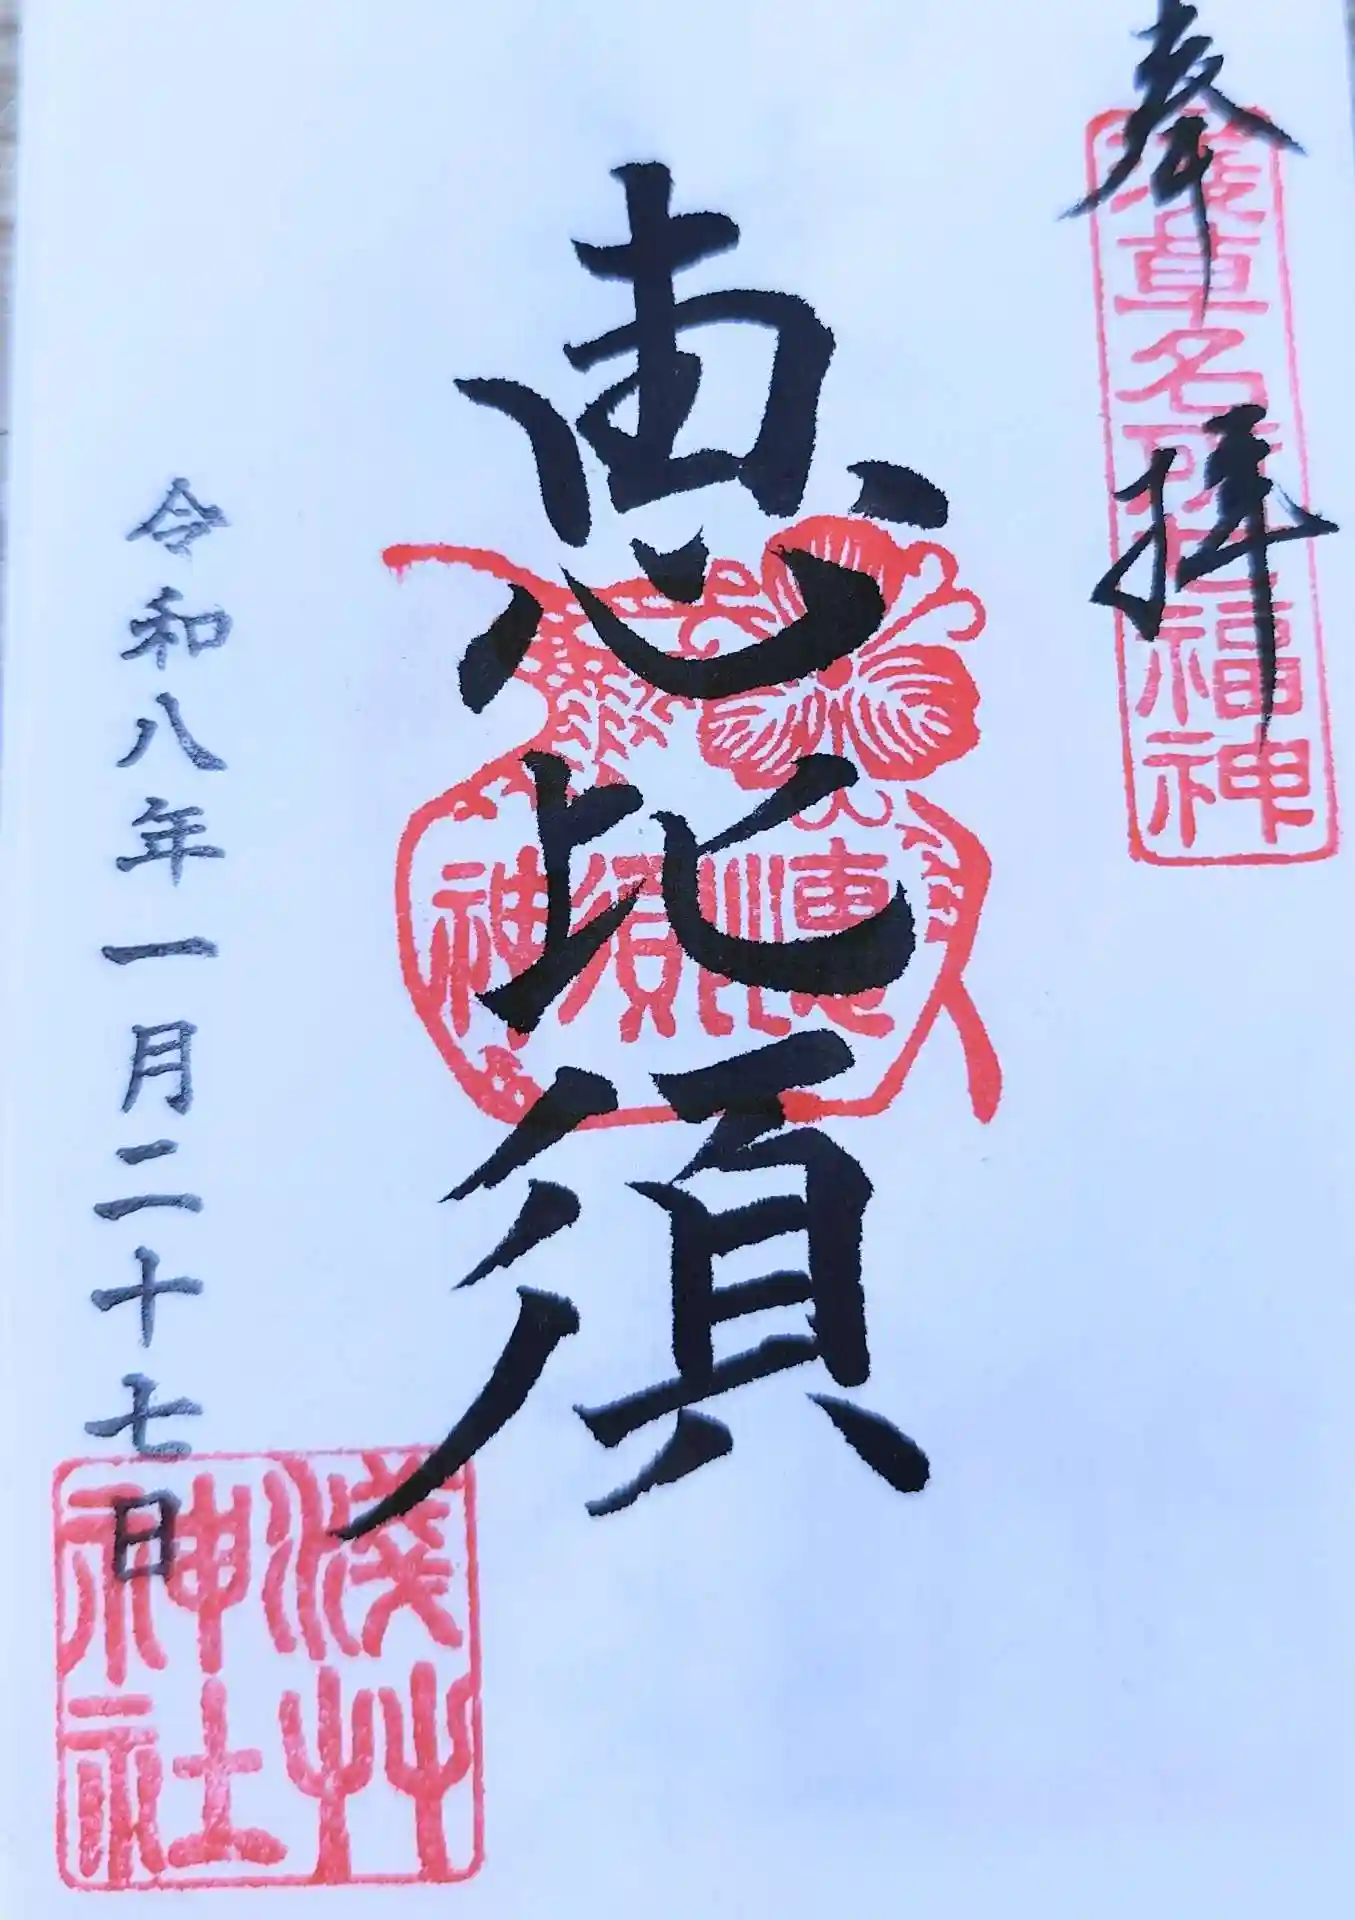 奉拝
浅草名所七福神
恵比須
恵比須神
令和八年一月二十七日
浅草神社